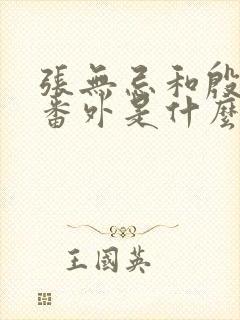 張無忌和殷
番外是什麼
王國英